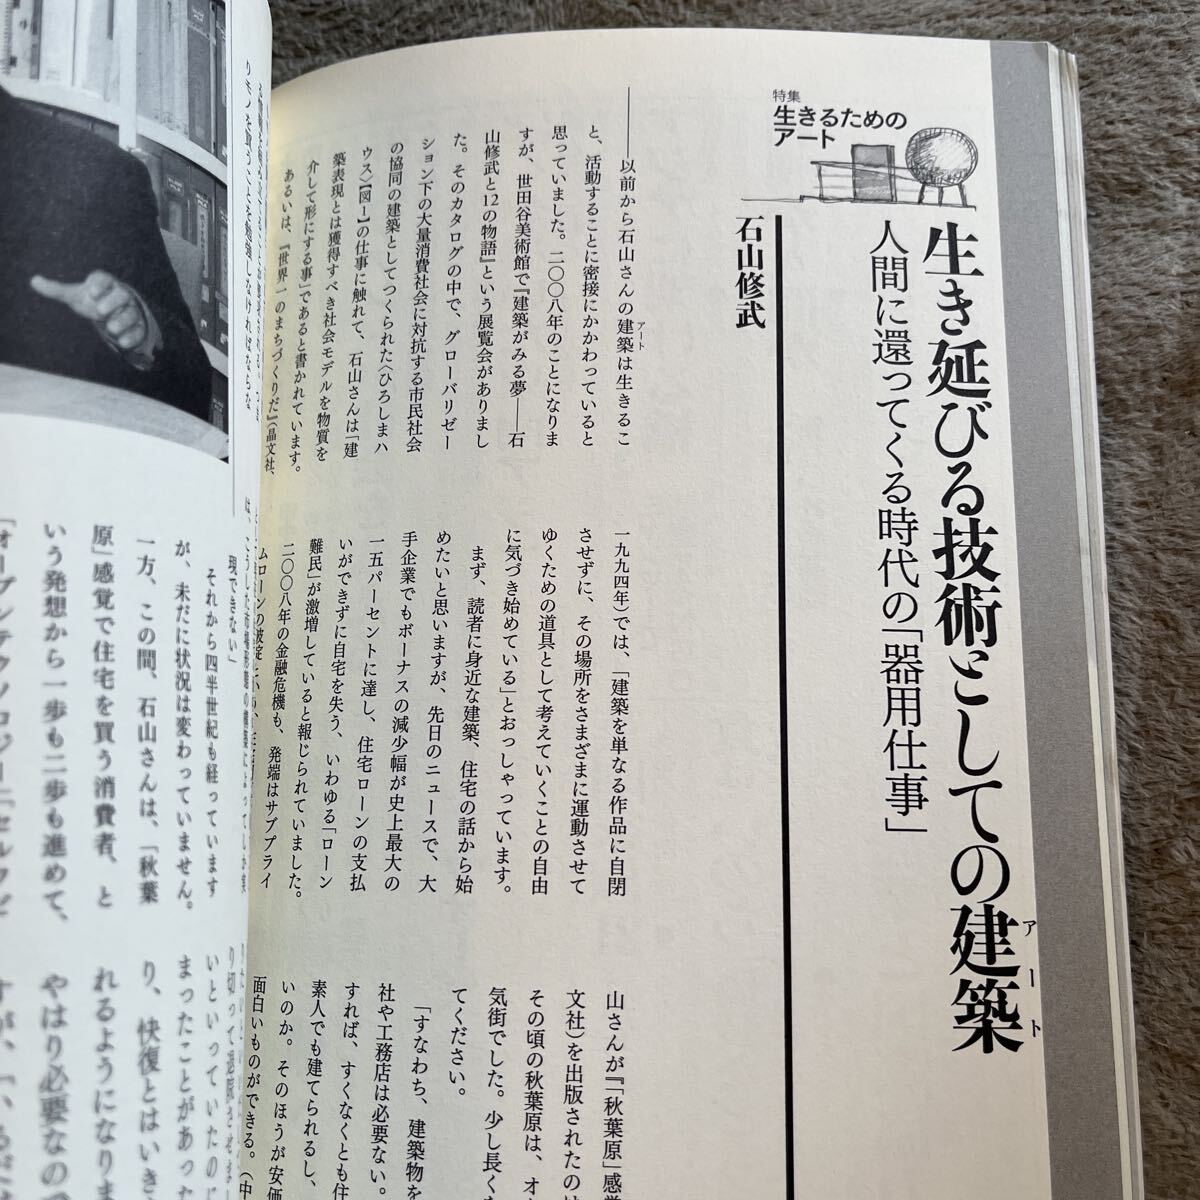 特集
生きるための
アート
生き延びる技術としての建築
アート
人間に還ってくる時代の「器用仕事」
石山修武
――以前から石山さんの建築は生きるこ
アート
と、活動することに密接にかかわっていると
思っていました。二〇〇八年のことになりま
すが、世田谷美術館で『建築がみる夢――石
山修武と12の物語』という展覧会がありまし
た。そのカタログの中で、グローバリゼー
ション下の大量消費社会に対抗する市民社会
の協同の建築としてつくられた〈ひろしまハ
ウス〉【図1】の仕事に触れて、石山さんは「建
築表現とは獲得すべき社会モデルを物質を
介して形にする事」であると書かれています。
あるいは、『世界一のまちづくりだ』(晶文社、
一九九四年)では、「建築を単なる作品に自閉
させずに、その場所をさまざまに運動させて
ゆくための道具として考えていくことの自由
に気づき始めている」とおっしゃっています。
まず、読者に身近な建築、住宅の話から始
めたいと思いますが、先日のニュースで、大
手企業でもボーナスの減少幅が史上最大の
一五パーセントに達し、住宅ローンの支払
いができずに自宅を失う、いわゆる「ローン
難民」が激増していると報じられていました。
二〇〇八年の金融危機も、発端はサブプライ
ムローンの破綻
山さんが『「秋葉原」感
文社)を出版されたの
その頃の秋葉原は、オ
気街でした。少し長く
てください。
「すなわち、建築物を
社や工務店は必要ない。
すれば、すくなくとも住
素人でも建てられるし、
いのか。そのほうが安価
面白いものができる。(中
りモノを買うことを勉強しなければならな
現できない」
それから四半世紀も経っています
が、未だに状況は変わっていません。
一方、この間、石山さんは、「秋葉
原」感覚で住宅を買う消費者、と
いう発想から一歩も二歩も進めて、
「オープンテクノロジー」「セルフビ
いといっていたのに
まったことがあった
り、快復とはいき
れるようになりま
やはり必要なので